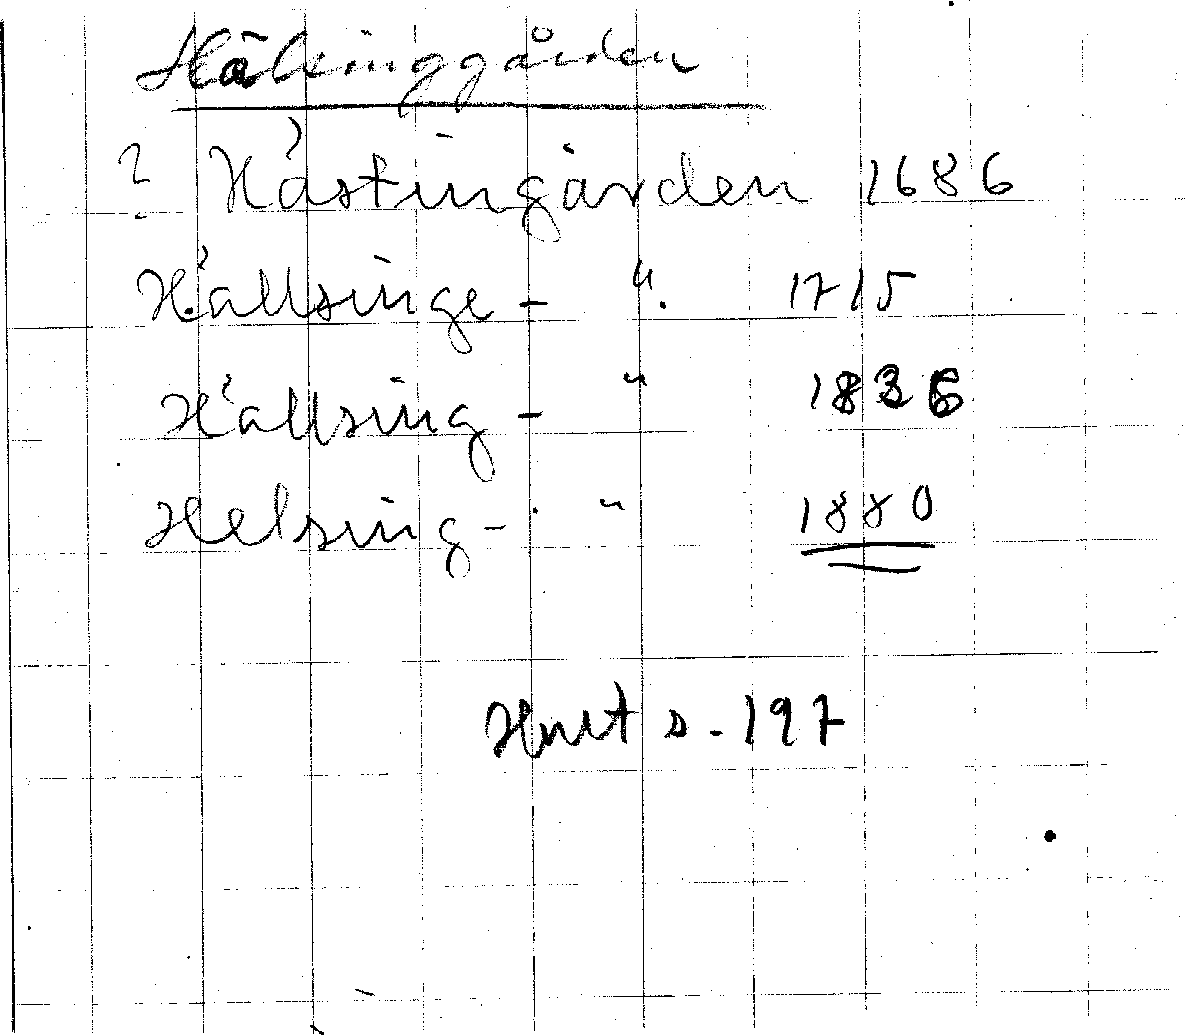 Hälsinggården
? Hästingården 1686
Hällsinge - " 1715
Hällsing - " 1836
Helsing - " 1880
Hult s. 197